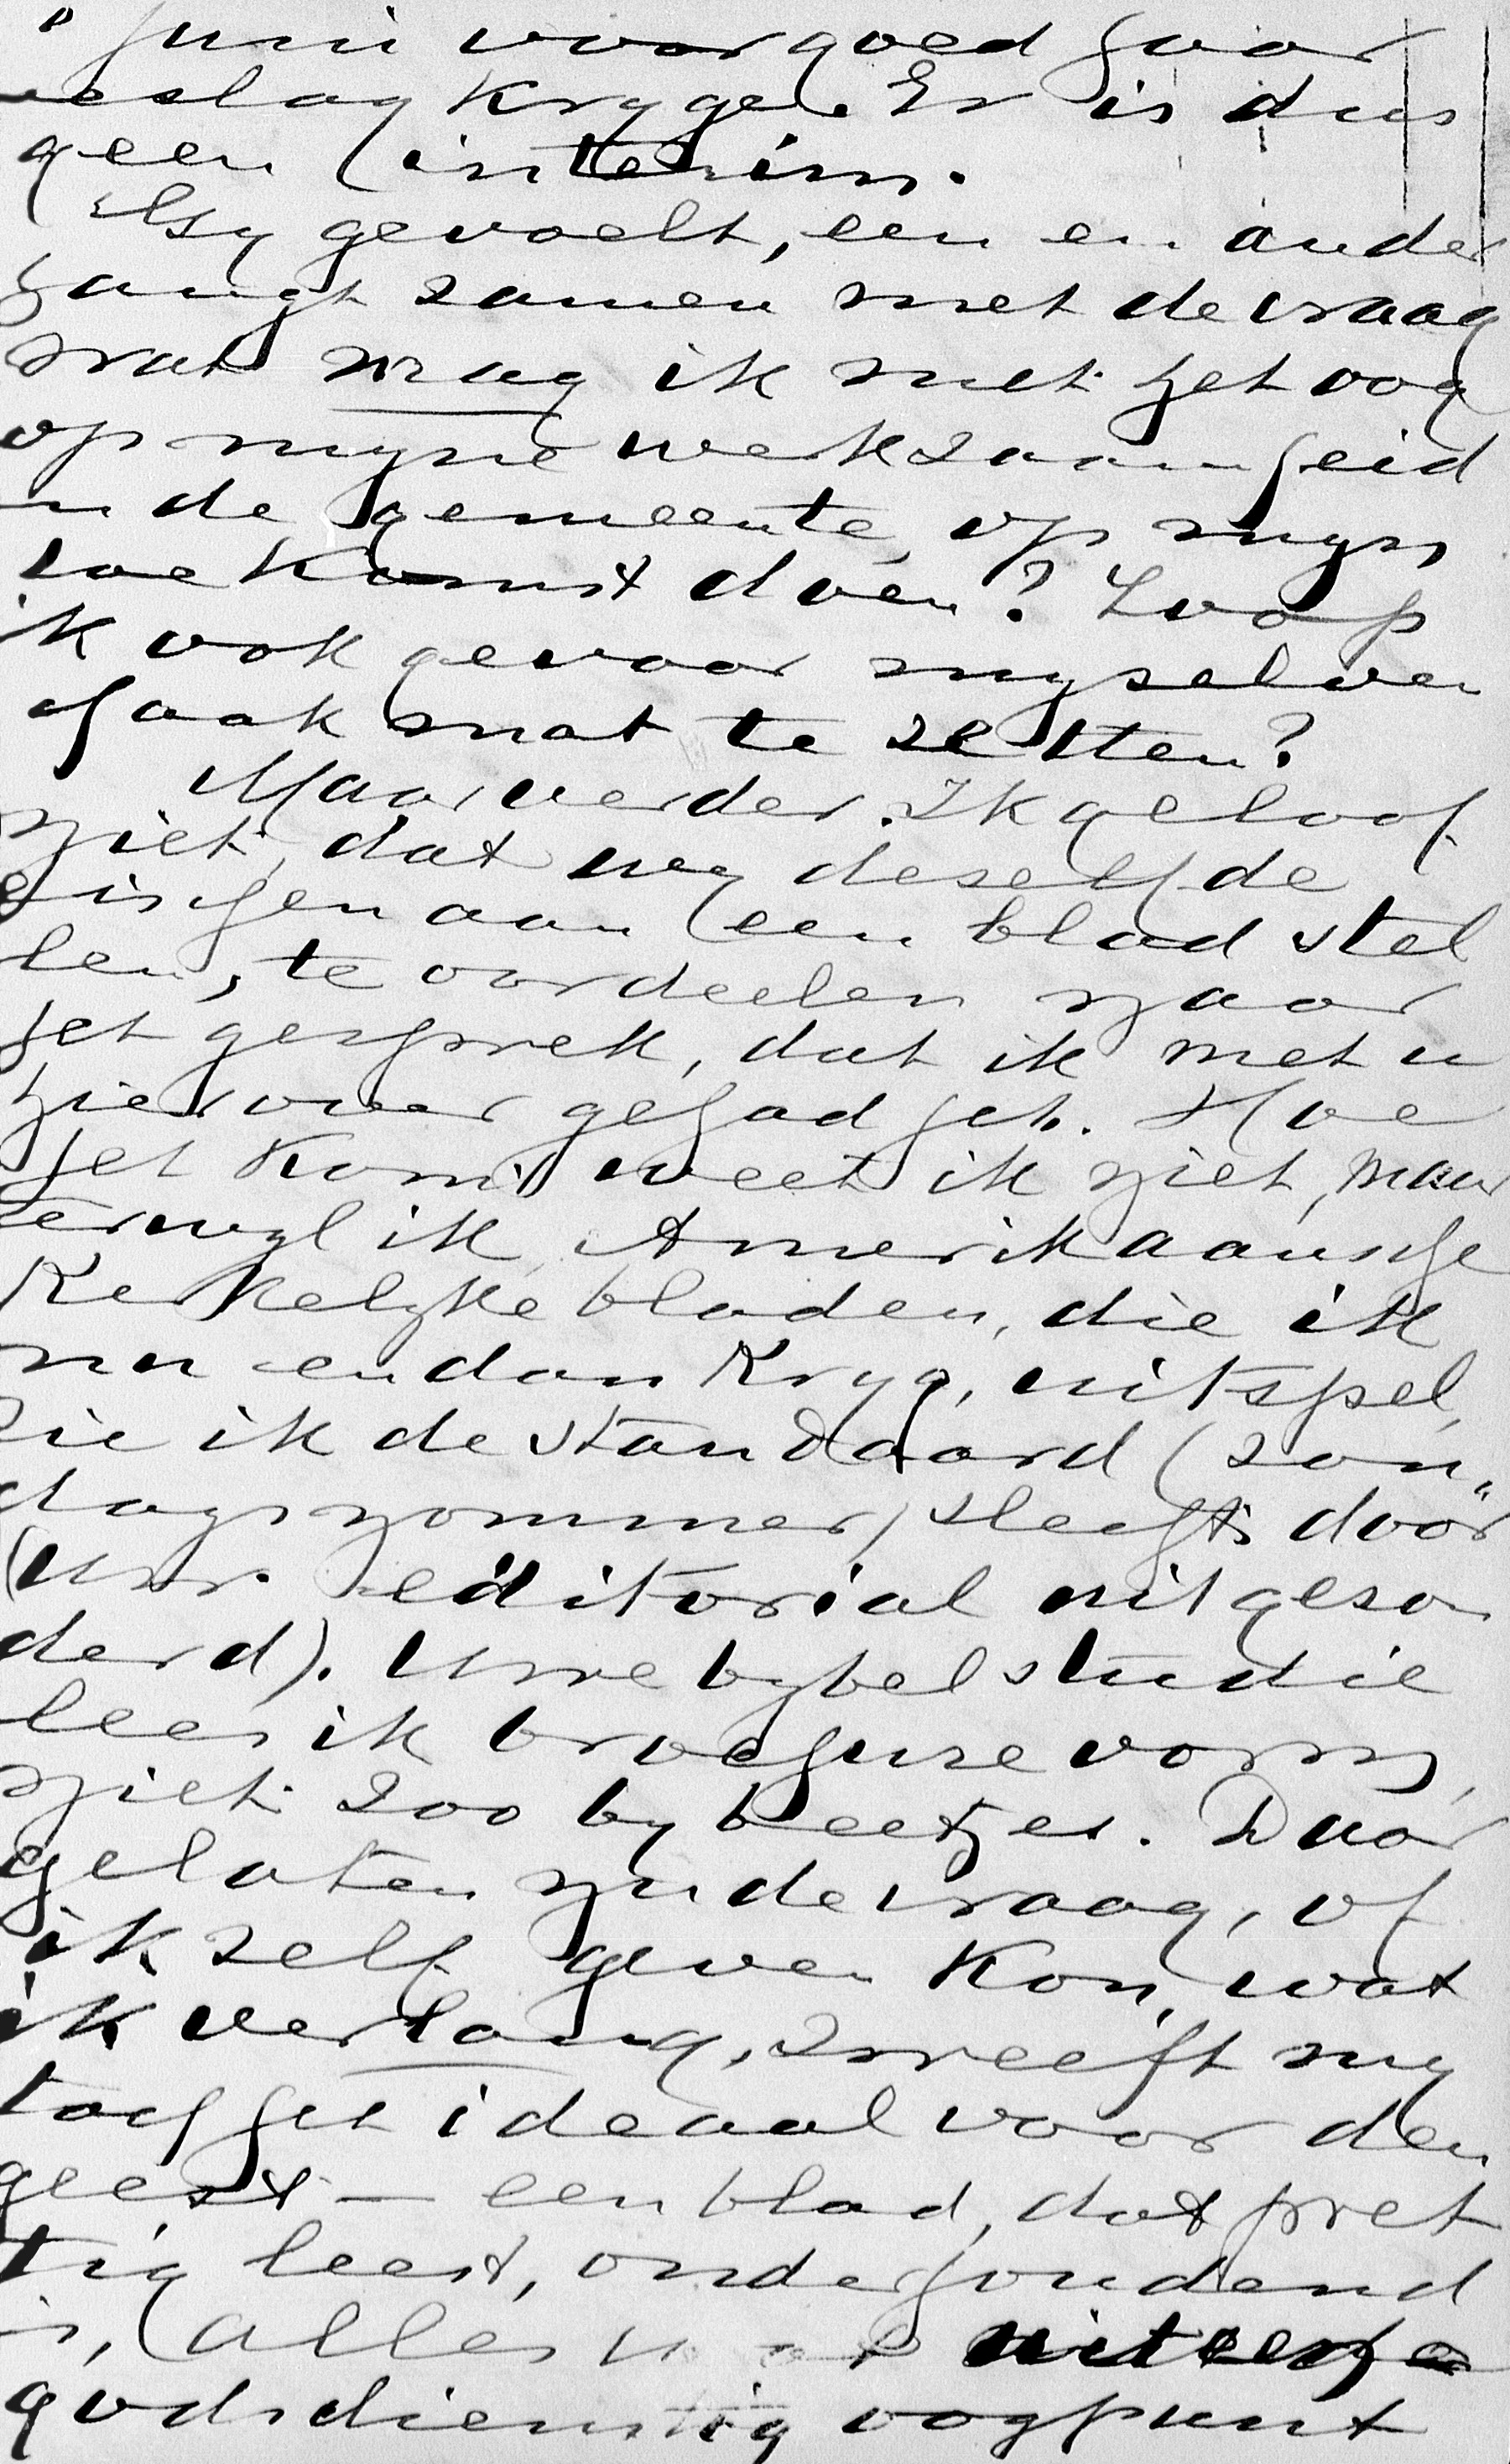 Juni voorgoed haar
beslag krygen. Er is dus
geen interim.
Gy gevoelt, een en ander
hangt samen met de vraag
wat mag ik met het oog
op myne werkzaamheid
in de gemeente, op myn
toekomst doen? Loop
ik ook gevaar myselven
schaakmat te zetten?
Maar verder. Ik geloof
niet, dat wy deselfde
eischen aan een blad stel
len, te oordeelen naar
het gesprek, dat ik met u
hierover gehad heb. Hoe
het komt weet ik niet, maar
terwyl ik Amerikaansche
Kerkelyke bladen, die ik
nu en dan kryg, uitspel,
zie ik de Standaard (Zon„
dagsnommer) slechts door
(uw editorial uitgeson
derd). Uwe bybelstudie
lees ik brochurevorm,
niet zoo by beetjes. Daar
gelaten nu de vraag, of
ik zelf geven kon, wat
ik verlang, zweeft my
toch het ideaal voor den
geest — een blad, dat pret
tig leest, onderhoudend
is, alles uit een
godsdienstig oogpunt